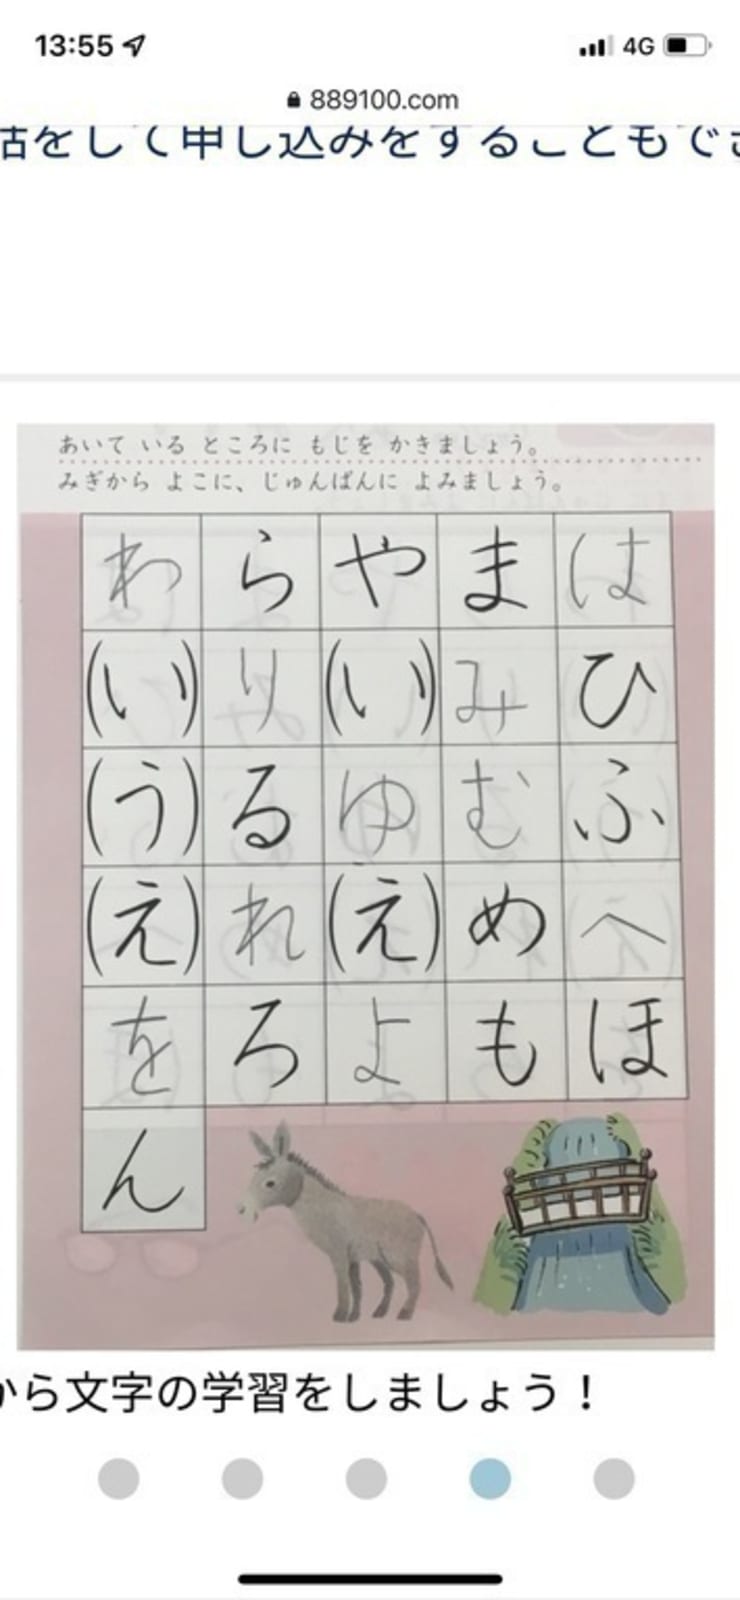 13:55
4G
889100.com
話をして申し込みをすることもでき
あいて いる ところに もじを かきましょう。
みぎから よこに、じゅんばんに よみましょう。
わ ら や ま は
(い) り (い) み ひ
(う) る ゆ む ふ
(え) れ (え) め へ
を ろ よ も ほ
ん
から文字の学習をしましょう！